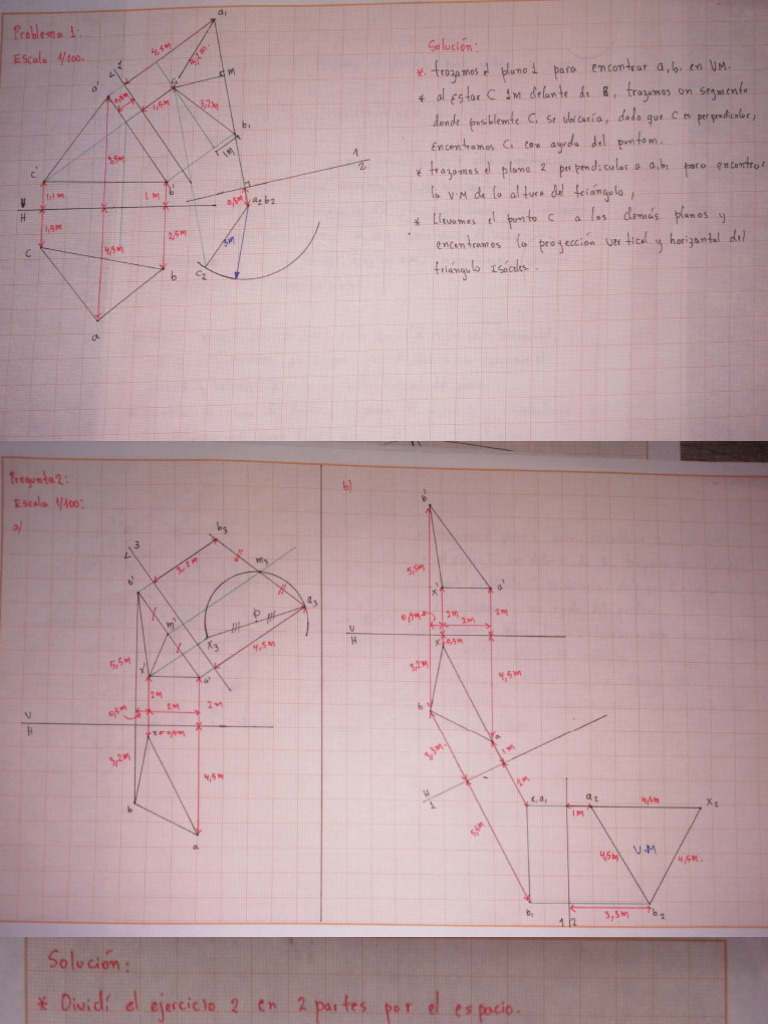 Problema 1:
Escala 1/100.
Solución:
* trazamos el plano 1 para encontrar a,b. en VM.
* al estar C 1m delante de B, trazamos un segmento
donde posiblemte C, se ubicaría, dado que C es perpendicular,
Encontramos C1 con ayuda del punto m.
* trazamos el plano 2 perpendicular a a1b1 para encontrar
la V.M de la altura del triángulo,
* Llevamos el punto C a los demás planos y
encontramos la proyección vertical y horizontal del
triángulo Isósceles.
a1
4,5m
3,2m
m
a'
0,5m
1,5m
3,2m
b1
1m
4,5m
c'
b'
1,1m
1m
V
H
1
2
0,5m
a2 b2
1,5m
4,5m
2,5m
3m
c
b
c2
a
Pregunta 2:
Escala 1/100:
a)
b3
3
3,2m
m3
b'
a3
m'
P
x3
4,5m
5,5m
x'
a'
2m
2m
0,5m
2m
V
H
x
0,5m
3,2m
4,5m
b
a
b)
b'
5,5m
x'
a'
0,5m
2m
2m
2m
V
H
x
0,5m
3,2m
4,5m
b
a
3,3m
1m
H
1
2m
5,5m
x1a1
a2
4,5m
x2
1m
4,5m
V.M
4,5m.
b1
3,3m
b2
1 2
Solución:
* Dividí el ejercicio 2 en 2 partes por el espacio.